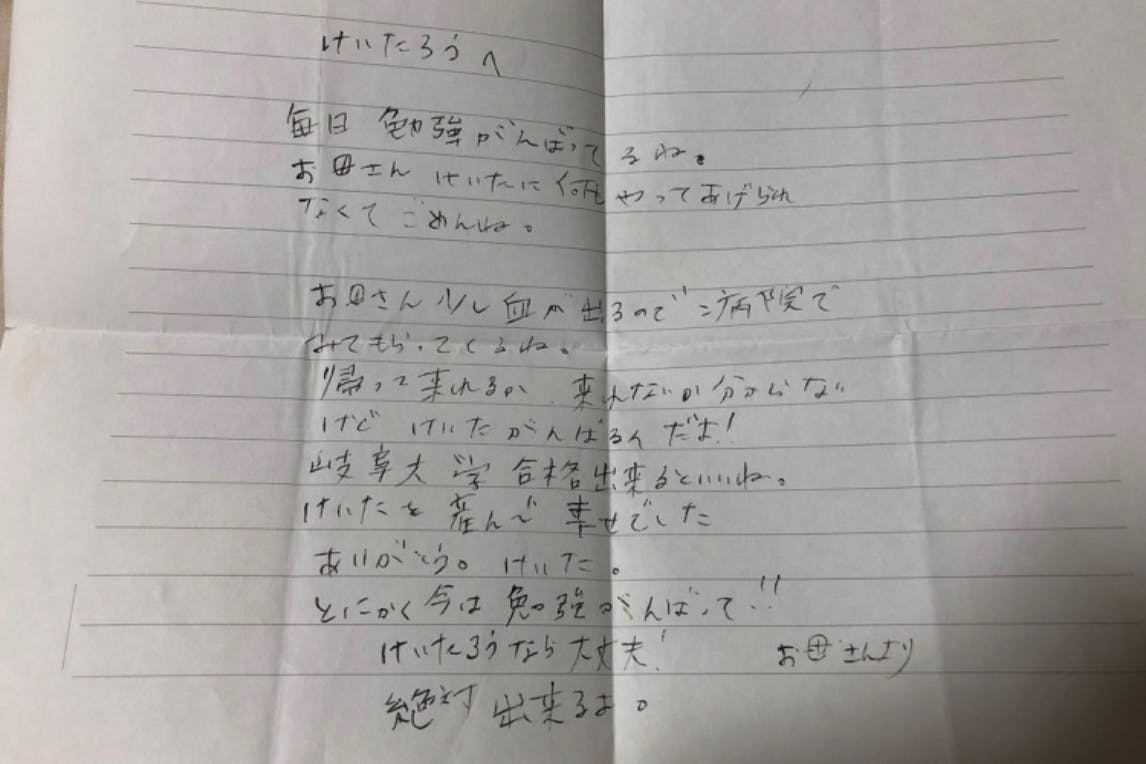 けいたろうへ
毎日 勉強がんばってるね。
お母さん けいたに何もやってあげられ
なくてごめんね。
お母さん少し血が出るので 病院で
みてもらってくるね。
帰って来れるか、来れないか分からない
けど けいたがんばるんだよ!
岐阜大学 合格出来るといいね。
けいたを産んで幸せでした
ありがとう。けいた。
とにかく今は勉強がんばって!!
けいたろうなら大丈夫!
お母さんより
絶対出来るよ。